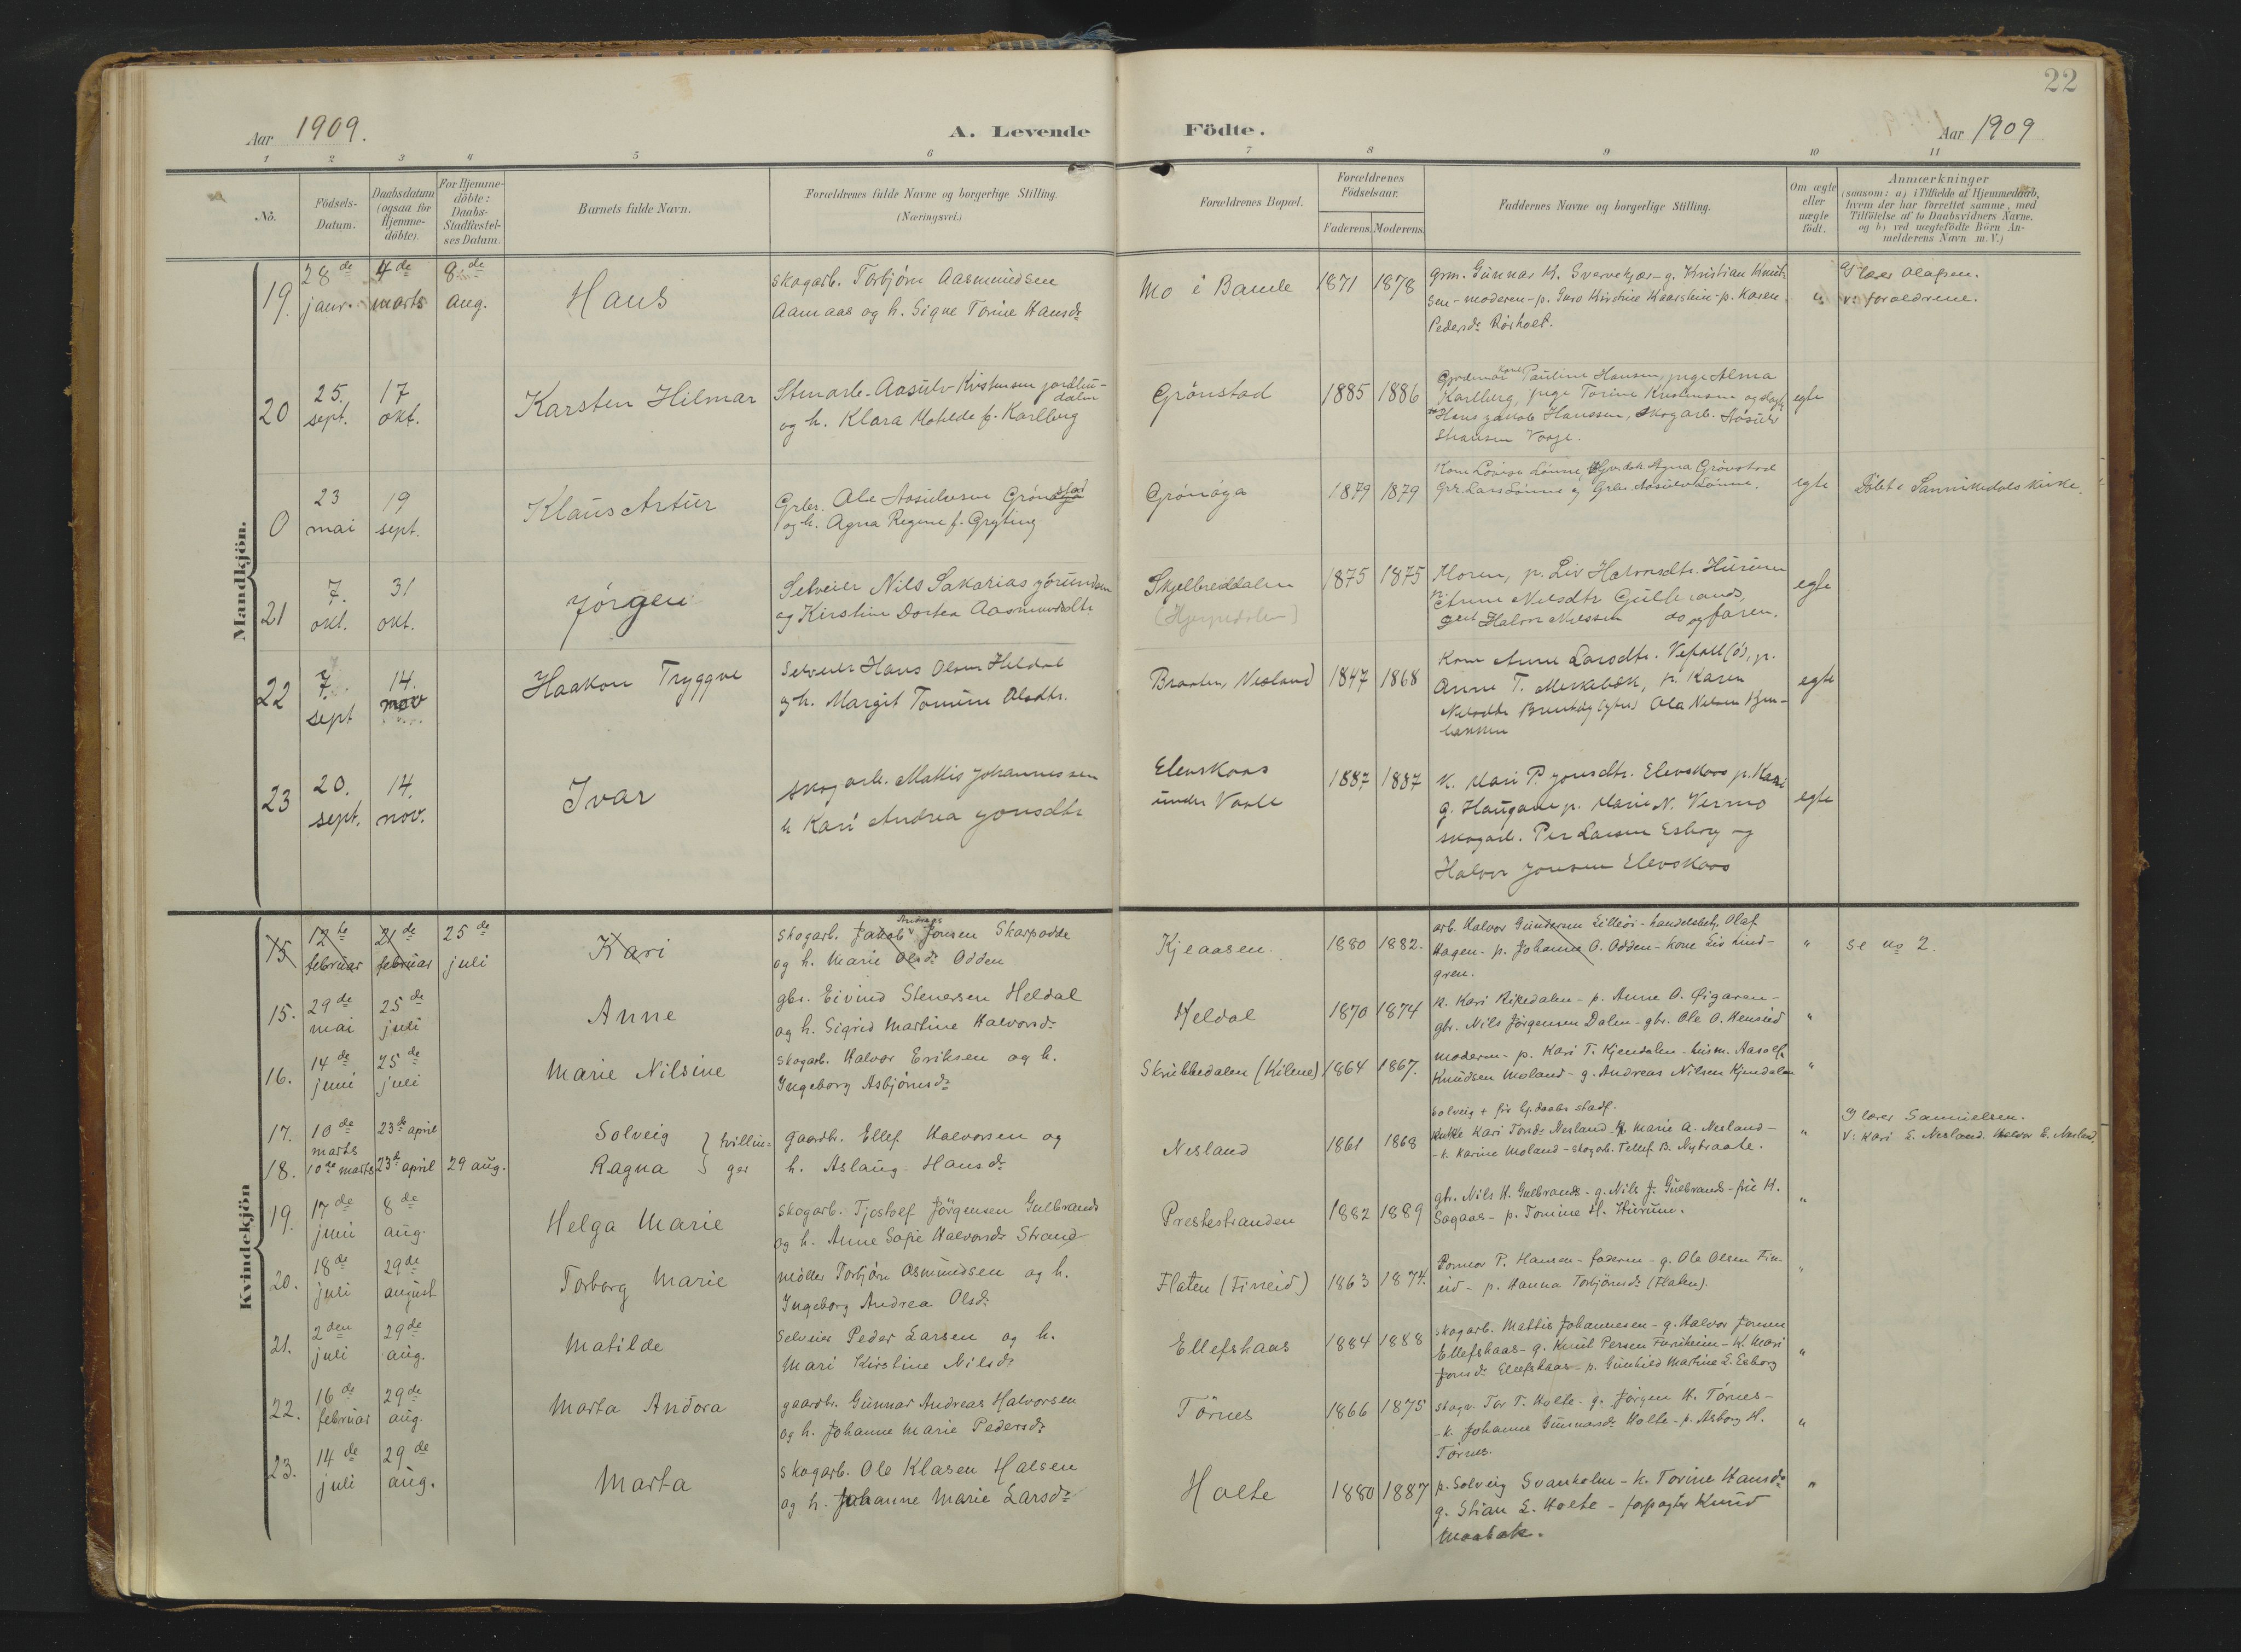 22
Aar 1909.
A. Levende Födte.
Aar 1909
1 2 3 4 5 6 7 8 9 10 11
No.
Födsels-
Datum.
Daabsdatum
(ogsaa for
Hjemme-
döbte).
For Hjemme-
döbte:
Daabs-
Stadfæstel-
ses Datum.
Barnets fulde Navn.
Forældrenes fulde Navne og borgerlige Stilling.
(Næringsvei.)
Forældrenes Bopæl.
Forældrenes
Födselsaar.
Faderens. Moderens.
Faddernes Navne og borgerlige Stilling.
Om ægte
eller
uægte
födt.
Anmærkninger
(saasom: a) i Tilfælde af Hjemmedaab,
hvem der har forrettet samme, med
Tilföielse af to Daabsvidners Navne.
og b) ved uægtefödte Börn An-
melderens Navn m. V.)
Mandkjön.
19.
28de
janr.
4de
marts
8de
aug.
Hans
skogarb. Torbjørn Aasmundsen
Aamaas og h. Signe Torine Hansdr
Mo i Bamle
1871
1878
grm. Gunnar H. Svervekjær - g. Kristian Knut-
sen - moderen - p. Guro Kirstine Kaarstein - p. Karen
Pedersdr Rørholt.
"
lærer Olafsen.
v: forældrene.
20
25.
sept.
17
okt.
Karsten Hilmar
Stenarb. Aasulv Kristensen jordbu-
dalen
og h. Klara Matilde f. Karlberg
Grönstad
1885
1886
Pauline Hansen, pige Alma
Karlberg, pige Torine Kristensen og
Hans Jakob Hanssen, skogarb. Aasulv
egte
0
23
mai
19
sept.
Klaus Artur
Grbr. Ole Aasulvsen Grönstad
og h. Agna Regine f. Gryting
Grönöya
1879
1879
Kone Lovise Lönne, Agna Grönstad
Gbr. Lars Lönne og Grbr. Aasulv Lönne.
egte
Döbt i Sannikedals kirke.
21
7.
okt.
31
okt.
Jörgen
Selveier Nils Sakarias Jörundsen
og Kirstine Dortea Aasmundsdtr
Skjelbreddalen
1875
1875
Moren, p. Liv Halvorsdtr. Hurum
p. Anne Nilsdtr Gulbrands,
Halvor Nilssen do og faren.
egte
22
7.
sept
14.
nov
Haakon Tryggve
Selveier Hans Olsen Heldal
og h. Margit Tomine Olsdtr.
Braaten, Nesland
1847
1868
Kone Anne Larsdtr. p.
Anne T. p. Karen
Nilsdtr Ola Nilsen
egte
23
20.
sept.
14.
nov.
Ivar
skogarb. Mattis Johannessen
h Kari Andrea Jonsdtr
Elevskaas
under Vaale
1887
1887
K. Mari P. Jonsdtr. Elevskaas p. Kari
G. Haugane p. Marie N.
skogarb. Per Larsen Esborg og
Halvor Jonsen Elevskaas
egte
Kvindekjön
15
12te
februar
21de
februar
25de
juli
Kari
Andreas
skogarb. Jakob Jonsen Skarpodde
og h. Marie Olsdr Odden
Kjeaasen.
1880
1882.
arb. Halvor Gundersen Lilleöi - handelsbetj. Olaf
Hagen - p. Johanne O. Odden - kone Liv Lind-
gren.
"
se no 2.
15.
29de
mai
25de
juli
Anne
gbr. Eivind Stenersen Heldal
og h. Sigrid Martine Halvorsdr
Heldal
1870
1874
k. Kari Ripedalen - p. Anne O. Øigaren -
gbr. Nils Jörgensen Dalen - gbr. Ole O. Henseid
"
16.
14de
juni
25de
juli
Marie Nilsine
skogarb. Halvor Eriksen og h.
Ingeborg Asbjörnsdr
Skrubbedalen (Kilene)
1864
1867.
moderen - p. Kari T. Kjendalen - husm. Aasolf
Knudsen Moland - g. Andreas Nilsen Kjendalen
"
17.
10de
marts
23de april
Solveig
18.
10de marts
23de april
29 aug.
Ragna
tvillin-
ger
gaardbr. Ellef Halvorsen og
h. Aslaug Hansdr
Nesland
1861
1868
Solveig + før hj.daabs stadf.
Kari Torsdr Nesland - p. Marie A. Nesland -
- k. Karine Moland - skogarb. Tellef B. Nybraate.
"
lærer Samuelsen.
V: Kari E. Nesland. Halvor E. Nesland.
19.
17de
juni
8de
aug.
Helga Marie
skogarb. Tjostolf Jörgensen Gulbrands
og h. Anne Sofie Halvorsdr Strand
Prestestranden
1882
1889
gbr. Nils H. Gulbrands - g. Nils J. Gulbrands - frk H.
Sagaas - p. Tomine H. Hurum.
"
20.
18de
juli
29de
august
Torborg Marie
møller Torbjörn Osmundsen og h.
Ingeborg Andrea Olsdr
Flaten (Finneid)
1863
1874.
Pernor P. Hansen - faderen - g. Ole Olsen Fin-
eid - p. Hanna Torbjörnsdr (Flaten).
"
21.
2den
juli
29de
aug.
Matilde
selveier Peder Larsen og h.
Mari Kirstine Nilsdr
Ellefskaas
1884
1888
skogarb. Mattis Johannesen - g. Halvor Jonsen
Ellefskaas - g. Knut Persen Furuheim - k. Mari
Jonsdr Ellefskaas - p. Gunhild Martine L. Esborg
"
22.
16de
februar
29de
aug.
Marta Andora
gaardbr. Gunnar Andreas Halvorsen
og h. Johanne Marie Pedersdr
Törnes
1866
1875
skogv. Tor T. Holte - g. Jörgen H. Törnes -
- k. Johanne Gunnarsdr Holte - p. Asborg H.
Törnes.
"
23.
14de
juli
29de
aug.
Marta
skogarb. Ole Klasen Halsen
og h. Johanne Marie Larsdr
Holte
1880
1887
p. Solveig Svanholm - k. Torine Hansdr
g. Stian L. Holte - forpagter Knud
Maabak.
"